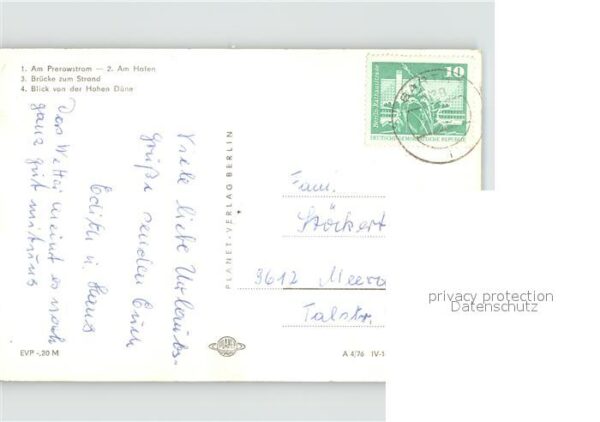 1. Am Prerowstrom — 2. Am Hafen
3. Brücke zum Strand
4. Blick von der Hohen Düne
Viele liebe Urlaubs-
grüße senden Euch
Edith u. Hans
Das Wetter meint es noch
ganz gut mit uns
PLANET-VERLAG BERLIN
10
Berlin, Rathausstrasse
DEUTSCHE DEMOKRATISCHE REPUBLIK
Fam.
Stöckert
9612 Meera
Talstr.
EVP -,20 M
PLANET
A 4/76 IV-1
privacy protection
Datenschutz